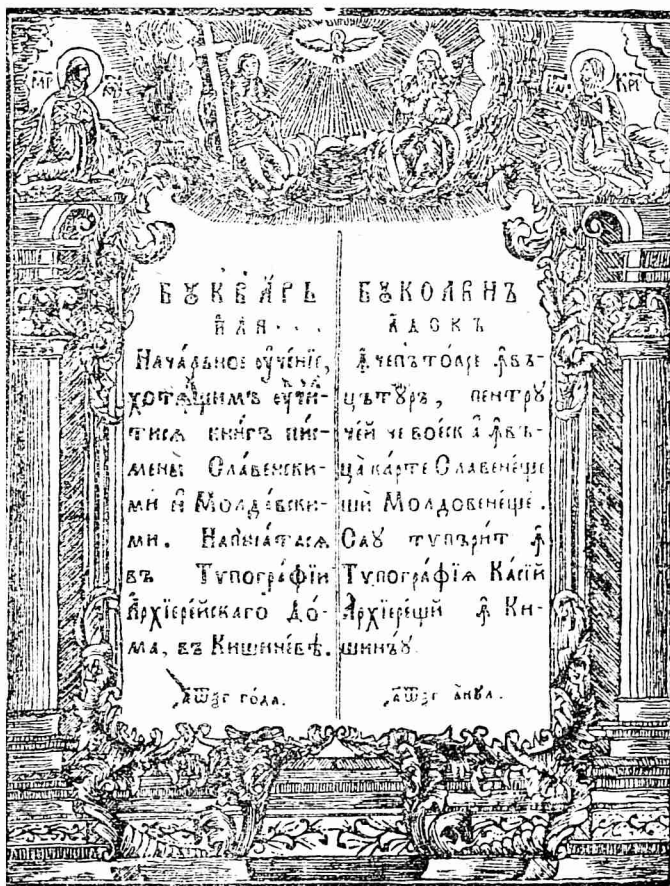 БꙊКВА́РЬ
И҆ЛИ...
Нача́льное ᲂу҆че́нїе,
хотѧ́щимъ ᲂу҆чи́-
тисѧ кни́гъ пис-
мены̀ Славе́нски-
ми и҆ Молда́вски-
ми. Напеча́тасѧ
въ Тѵпогра́фїи
А҆рхїере́йскаго До́-
ма, въ Кишине́вѣ.
҂аѿѯг го́да.
БꙊКОАВНЪ
АДЕКЪ
Ꙟчепъто́аре ꙟвъ-
цътꙋ́ръ, пентрꙋ
че́й че вое́ск а҆ ꙟвъ-
ца̀ ка́рте Славене́ще
шѝ Молдовене́ще.
Саꙋ тѵпъри́т ꙟ
Тѵпогра́фїѧ Ка́сїй
А҆рхїере́щй ꙟ Ки-
шинъ́ꙋ.
҂аѿѯг а҆нꙋл.